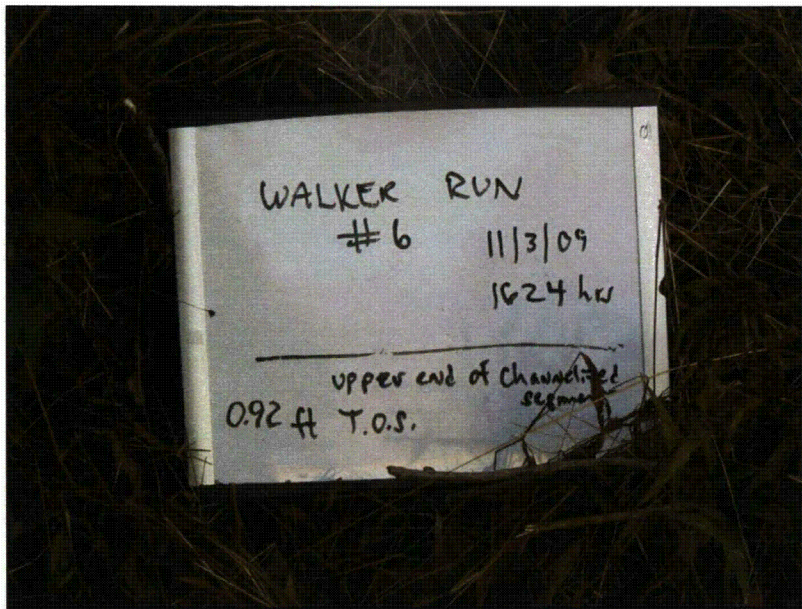 WALKER RUN
#6 11/3/09
1624 hrs
upper end of channelized
segment
0.92 ft T.O.S.